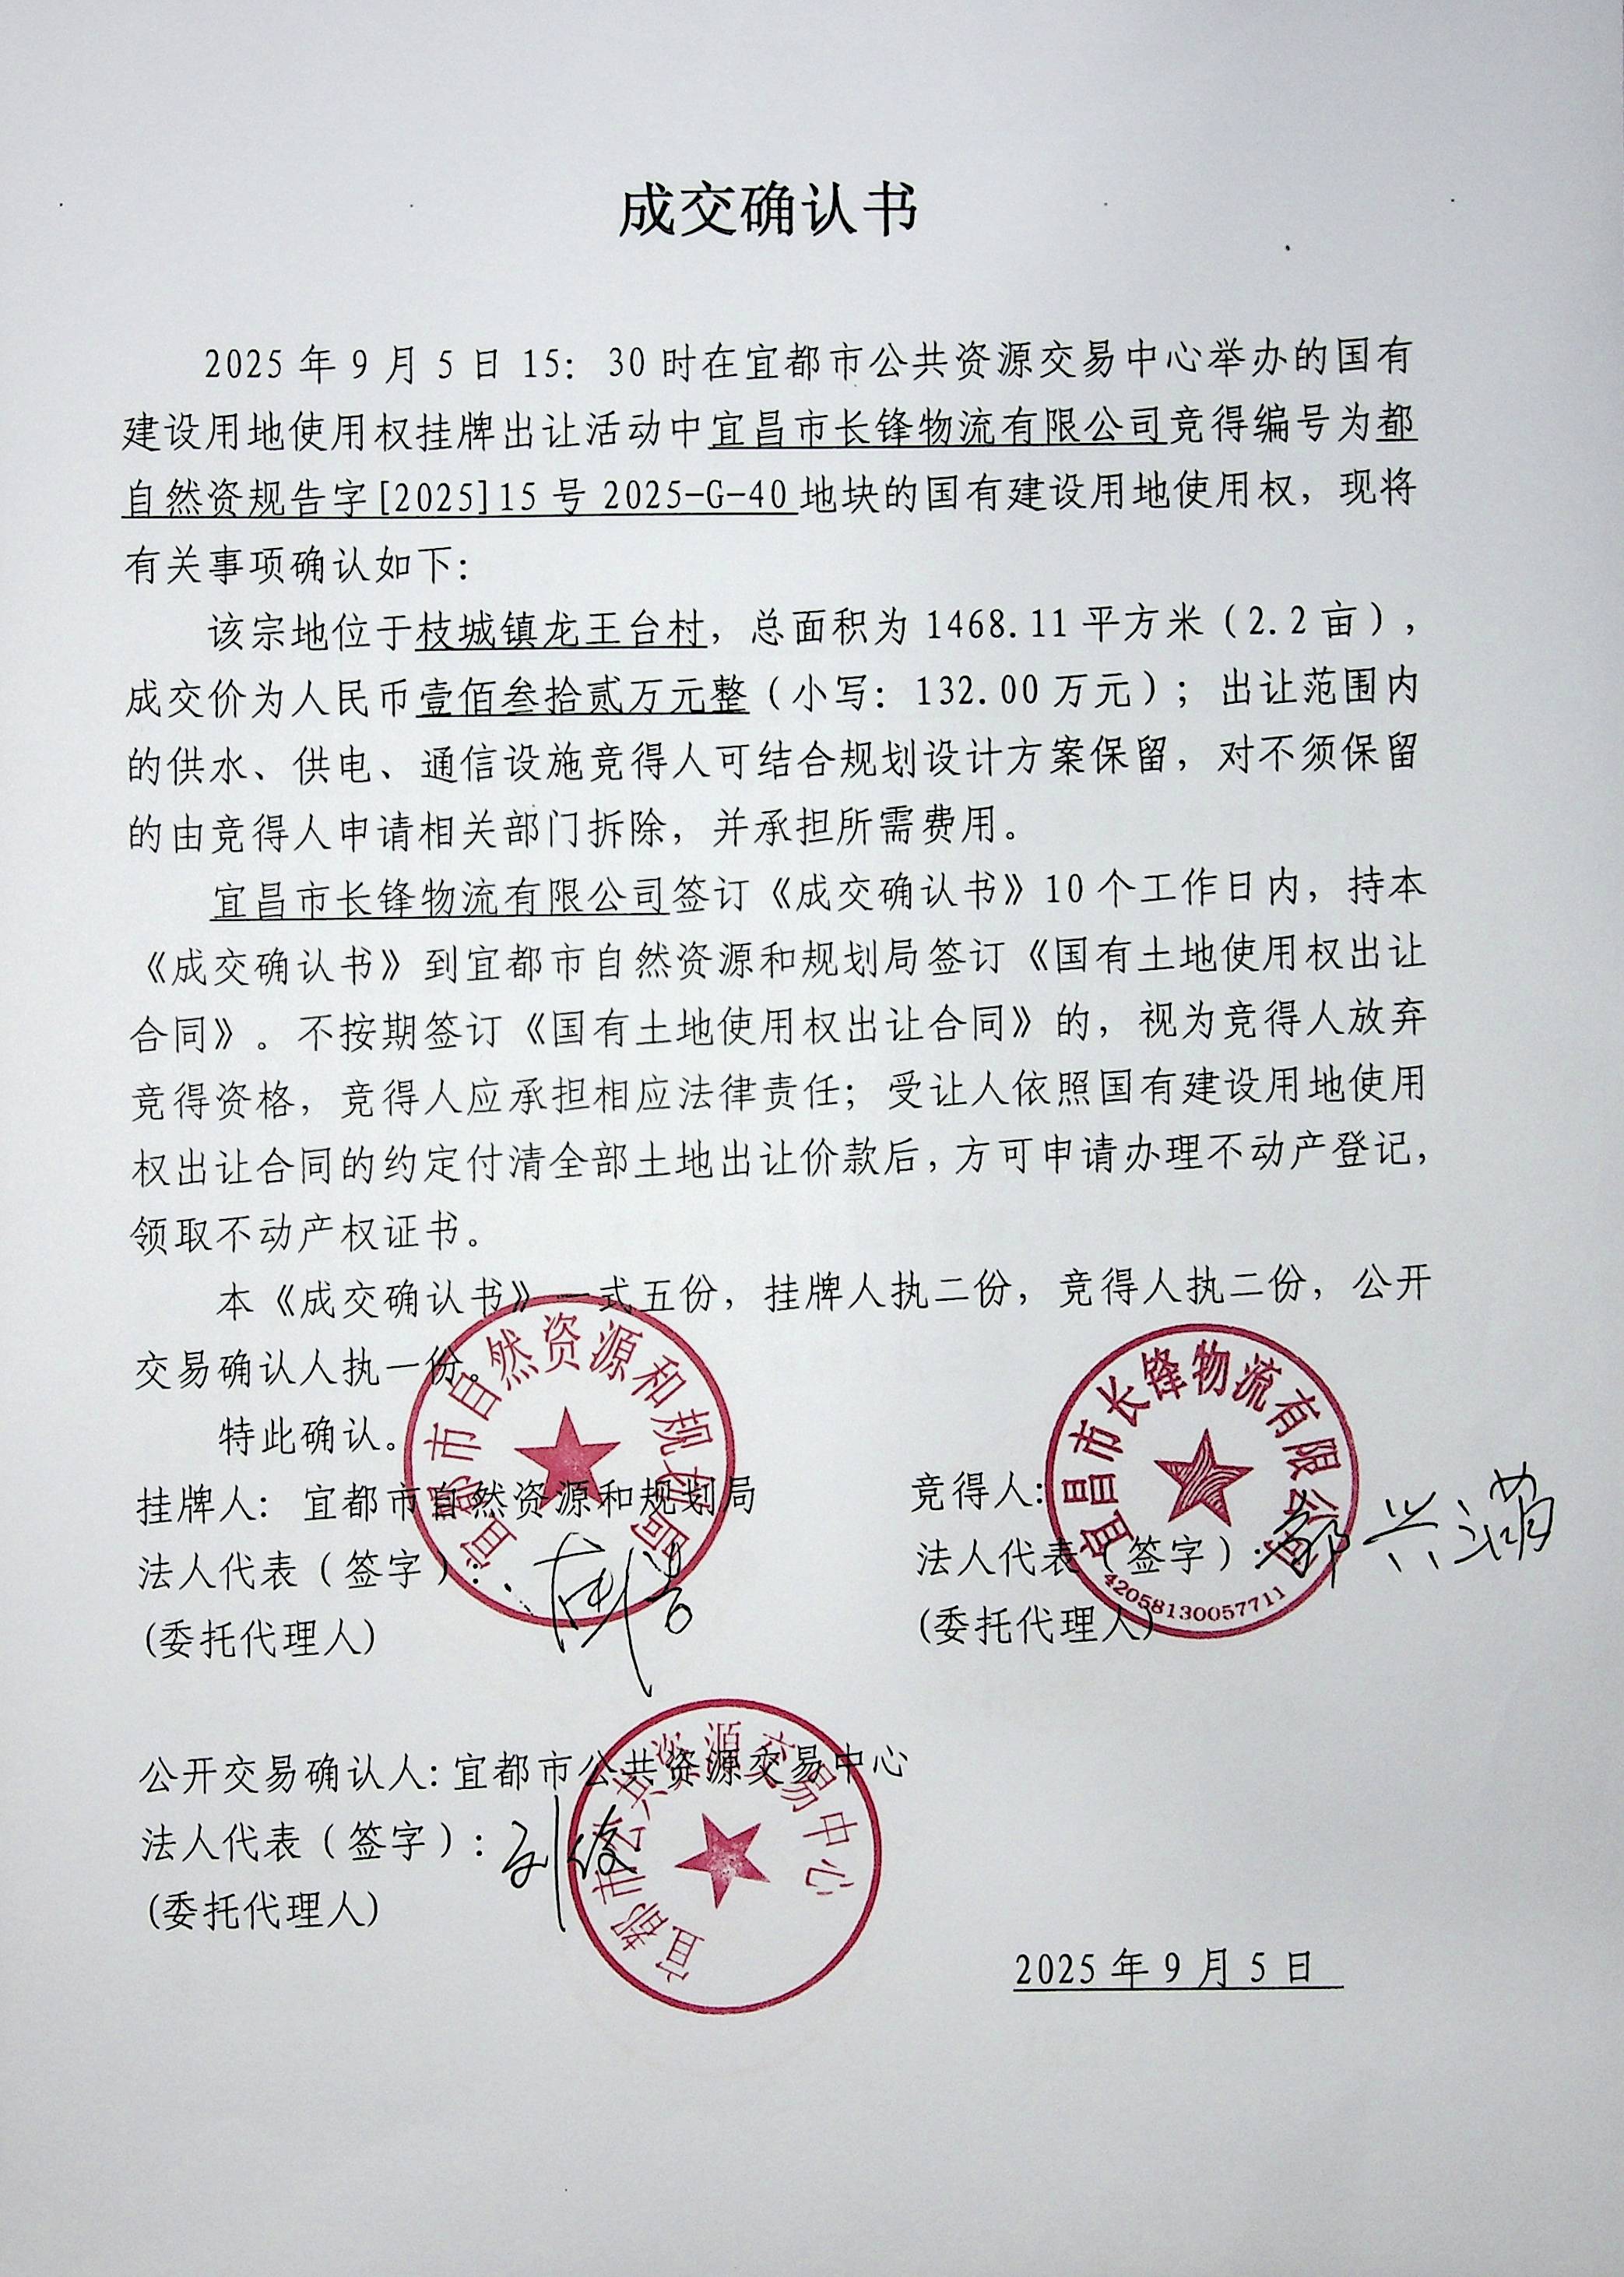 成交确认书
2025年9月5日15：30时在宜都市公共资源交易中心举办的国有
建设用地使用权挂牌出让活动中宜昌市长锋物流有限公司竞得编号为都
自然资规告字[2025]15号2025-G-40地块的国有建设用地使用权，现将
有关事项确认如下：
该宗地位于枝城镇龙王台村，总面积为1468.11平方米（2.2亩），
成交价为人民币壹佰叁拾贰万元整（小写：132.00万元）；出让范围内
的供水、供电、通信设施竞得人可结合规划设计方案保留，对不须保留
的由竞得人申请相关部门拆除，并承担所需费用。
宜昌市长锋物流有限公司签订《成交确认书》10个工作日内，持本
《成交确认书》到宜都市自然资源和规划局签订《国有土地使用权出让
合同》。不按期签订《国有土地使用权出让合同》的，视为竞得人放弃
竞得资格，竞得人应承担相应法律责任；受让人依照国有建设用地使用
权出让合同的约定付清全部土地出让价款后，方可申请办理不动产登记，
领取不动产权证书。
本《成交确认书》一式五份，挂牌人执二份，竞得人执二份，公开
交易确认人执一份。
特此确认。
挂牌人：宜都市自然资源和规划局
法人代表（签字）：
(委托代理人)
宜都市自然资源和规划局
竞得人：
法人代表（签字）：
(委托代理人)
宜昌市长锋物流有限公司
4205813005​7711
公开交易确认人：宜都市公共资源交易中心
法人代表（签字）：刘俊
(委托代理人)
宜都市公共资源交易中心
2025年9月5日